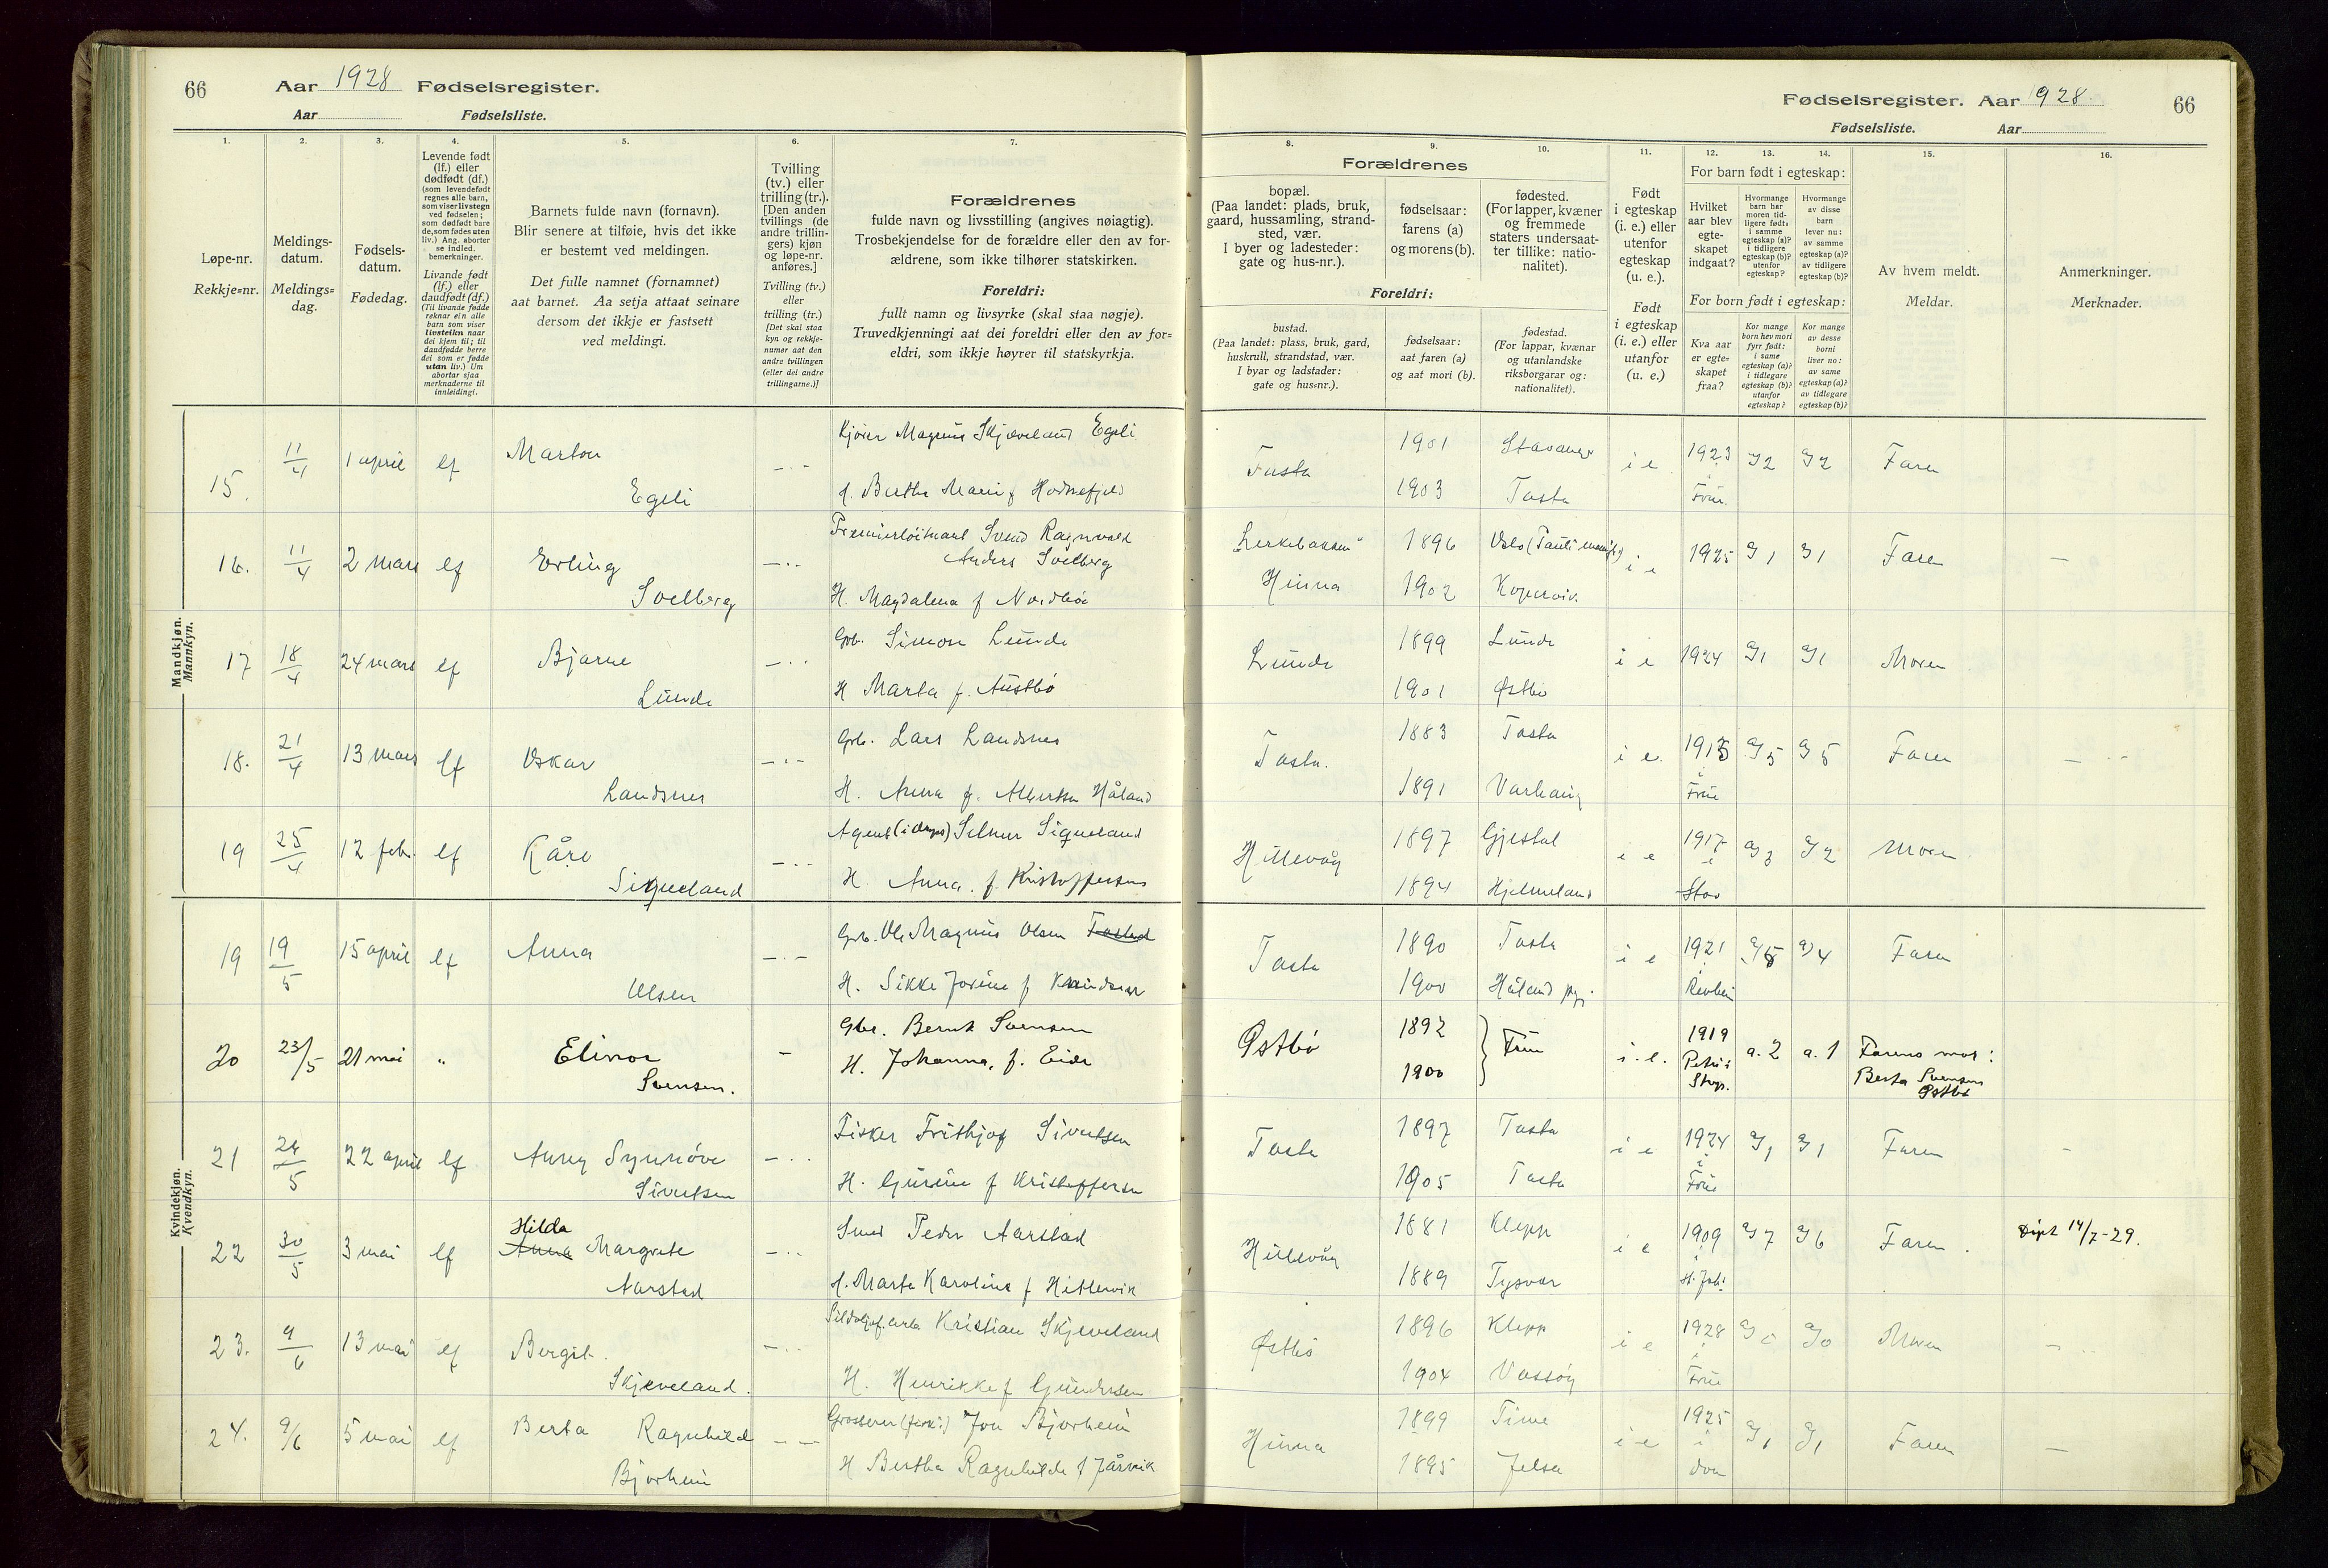 66
Aar 1928 Fødselsregister.
Aar Fødselsliste.
Fødselsregister. Aar 1928.
66
Fødselsliste. Aar
1.
Løpe-nr.
Rekkje=nr.
2.
Meldings-
datum.
Meldings=
dag.
3.
Fødsels-
datum.
Fødedag.
4.
Levende født
(lf.) eller
dødfødt (df.)
(som levendefødt
regnes alle barn,
som viser livstegn
ved fødselen;
som dødfødt bare
de, som fødes uten
liv.) Ang. aborter
se indled.
bemerkninger.
Livande født
(lf.) eller
daudfødt (df.)
(Til livande fødde
reknar ein alle
barn som viser
livsteikn naar
dei kjem til; til
daudfødde berre
dei som er fødde
utan liv.) Um
abortar sjaa
merknaderne til
innleidingi.
5.
Barnets fulde navn (fornavn).
Blir senere at tilføie, hvis det ikke
er bestemt ved meldingen.
Det fulle namnet (fornamnet)
aat barnet. Aa setja attaat seinare
dersom det ikkje er fastsett
ved meldingi.
6.
Tvilling
(tv.) eller
trilling (tr.).
[Den anden
tvillings (de
andre trillin-
gers) kjøn
og løpe-nr.
anføres.]
Tvilling (tv.)
eller
trilling (tr.)
[Det skal staa
kyn og rekkje-
numer aat den
andre tvillingen
(eller dei andre
trillingarne.)]
7.
Forældrenes
fulde navn og livsstilling (angives nøiagtig).
Trosbekjendelse for de forældre eller den av for-
ældrene, som ikke tilhører statskirken.
Foreldri:
fullt namn og livsyrke (skal staa nøgje).
Truvedkjenningi aat dei foreldri eller den av for=
eldri, som ikkje høyrer til statskyrkja.
8.
Forældrenes
bopæl.
(Paa landet: plads, bruk,
gaard, hussamling, strand-
sted, vær.
I byer og ladesteder:
gate og hus-nr.).
Foreldri:
bustad.
(Paa landet: plass, bruk, gard,
huskrull, strandstad, vær.
I byar og ladstader:
gate og hus=nr.).
9.
fødselsaar:
farens (a)
og morens (b).
fødselsaar:
aat faren (a)
og aat mori (b).
10.
fødested.
(For lapper, kvæner
og fremmede
staters undersaat-
ter tillike: natio-
nalitet).
fødestad.
(For lappar, kvænar
og utanlandske
riksborgarar og:
nationalitet).
11.
Født
i egteskap
(i. e.) eller
utenfor
egteskap
(u. e.).
Født
i egteskap
(i. e.) eller
utanfor
egteskap
(u. e.)
12. 13. 14.
For barn født i egteskap:
Hvilket
aar blev
egte-
skapet
indgaat?
Hvormange
barn har
moren tid-
ligere født:
i samme
egteskap (a)?
i tidligere
egteskap (b)?
utenfor
egteskap?
Hvormange
av disse
barn
lever nu:
av samme
egteskap (a)?
av tidligere
egteskap (b)?
For born født i egteskap:
Kva aar
er egte-
skapet
fraa?
Kor mange
born hev mori
fyrr født:
i same
egteskap (a)?
i tidlegare
egteskap (b)?
utanfor
egteskap?
Kor mange
av desse
borni
liver no:
av same
egteskap (a)?
av tidlegare
egteskap (b)?
15.
Av hvem meldt.
Meldar.
16.
Anmerkninger.
Merknader.
Mandkjøn.
Mannkyn.
15. 11/4 1 april lf
Egeli
Magnus Skjæveland Egeli
Tasta 1901 Stavanger i e 1923 2 2 Faren
1903 Tasta Frue
16. 11/4 2 mars lf Erling
Solberg
Premierløitnant Svend Ragnvald
Anders Solberg
H. Magdalena f Nordbø
Hinna 1896 i e 1925 1 1 Faren —
1902 Kopervik
17 18/4 24 mars lf Bjarne
Lunde
Gbr. Simon Lunde
H Marta f. Austbø
Lunde 1899 Lunde i e 1924 1 1 Moren
1901 Østbø
18. 21/4 13 mars lf Oskar
Landsnes
Gbr. Lars Landsnes
H. Anna f. Håland
Tasta. 1883 Tasta i e. 5 5 Faren —
1891 Varhaug Frue
19 25/4 12 febr. lf Kåre
Sigveland
Agent Selmer Sigveland
H. Anna. f. Kristoffersen
Hillevåg 1897 Gjestal i e 1917 3 2 Moren
1894 Hjelmeland Stav
Kvindekjøn.
Kvendkyn.
19 19/5 15 april lf Anna
Olsen
Gbr. Ole Magnus Olsen Tastad
H. Sikke Jorine f Knudsen
Tasta 1890 Tasta i e 1921 5 4 Faren
1900 Håland pgj. Revheim
20 23/5 21 mai " Elinor
Svensen.
Gbr. Bernt Svensen
H. Johanna, f. Eide
Østbø 1892 Frue i. e. 1919 a. 2 a. 1 Farens mor:
1900 Petri i Berta Svensen
Stvgr. Østbø
21 24/5 22 april lf Anny Synnøve
Sivertsen
Fisker Frithjof Sivertsen
H. Gurine f Kristoffersen
Tasta 1897 Tasta i e 1924 1 1 Faren
1905 Tasta Frue
Hilda
22 30/5 3 mai lf Anna Margrete
Aarstad
Smed Peder Aarstad
H. Marta Karoline f Hettervik
Hillevåg 1881 Klepp i e 1909 7 6 Faren. Døpt 14/7-29.
1889 Tysvær
23. 9/6 13 mai lf Bergit.
Skjeveland.
Kristian Skjeveland
H. Henrikke f Gundersen
Østbø 1896 Klepp i e 1928 0 0 Moren —
1904 Vassøy Frue
24. 9/6 5 mai lf Berta Ragnhild
Bjorheim
Grosserer Jon Bjorheim
H Bertha Ragnhilda f Jårvik
Hinna 1899 Time i e 1925 1 1 Faren —
1895 Jelsa